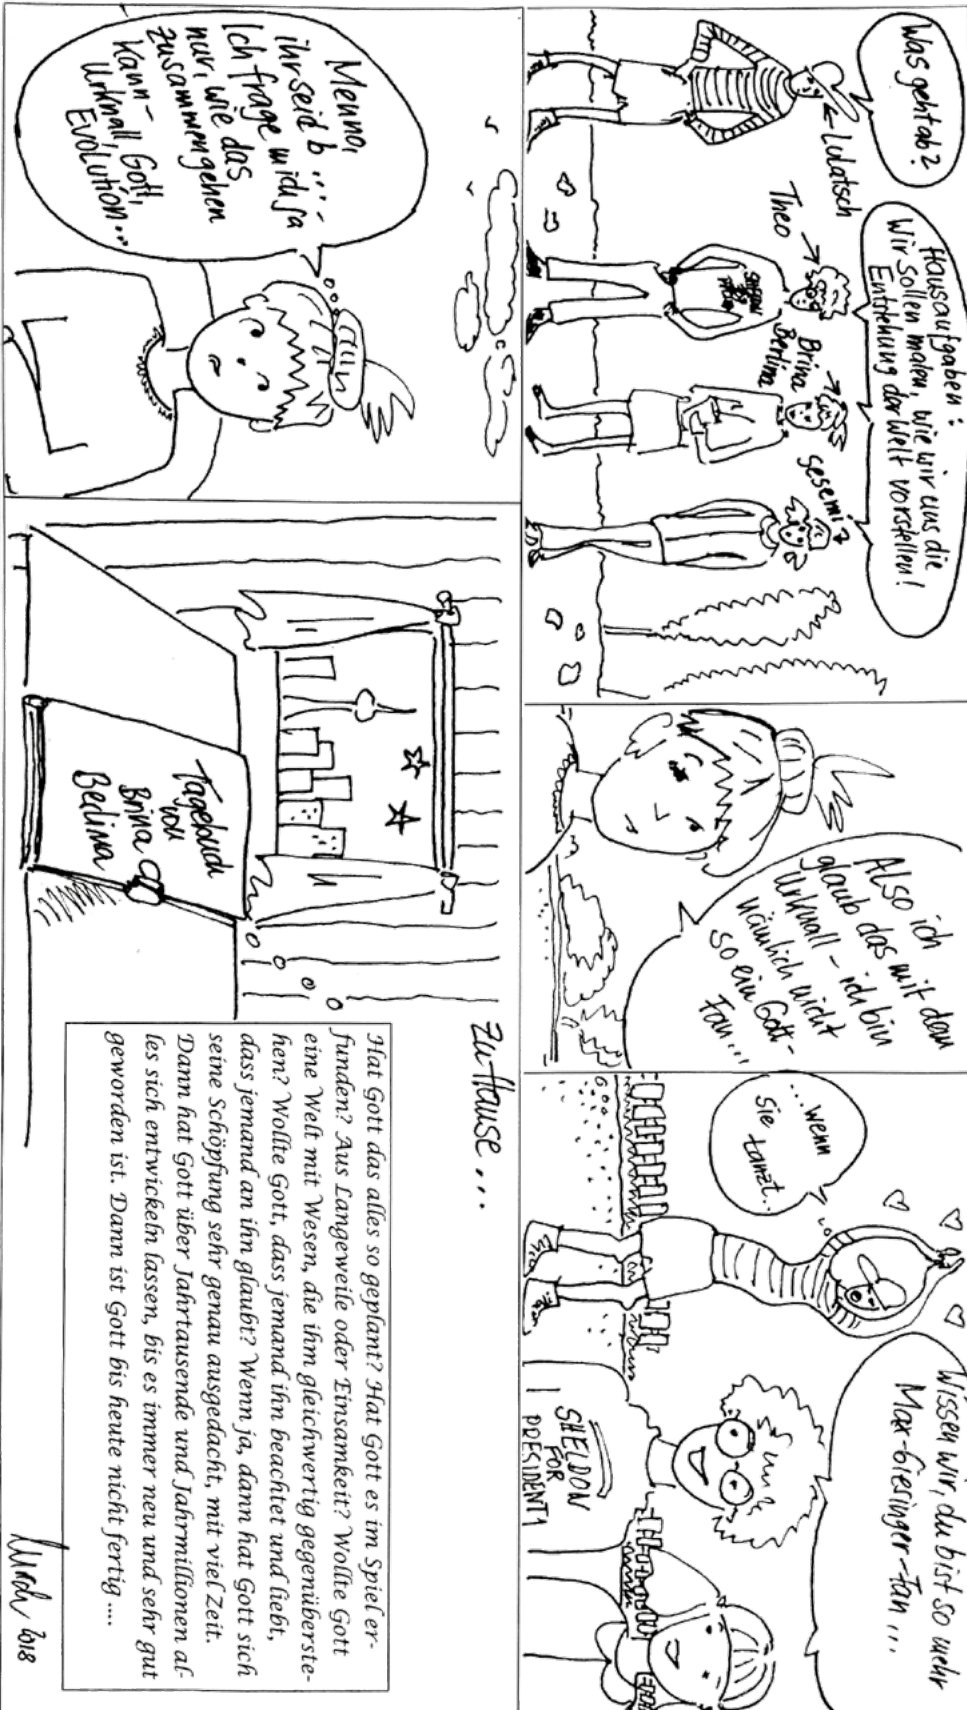 Was geht ab?
Lulatsch
Hausaufgaben:
Wir sollen malen, wie wir uns die
Entstehung der Welt vorstellen!
Theo
Brina
Berlina
Sesemi
Also ich
glaub das mit dem
Urknall – ich bin
nämlich nicht
so ein Gott-
Fan...
...wenn
Sie tanzt...
Wissen wir, du bist so mehr
Max-Giesinger-Fan...
SHELDON
FOR
PRESIDENT
Menno,
ihr seid b....
Ich frage mich ja
nur, wie das
zusammengehen
kann –
Urknall, Gott,
Evolution...
Zu Hause...
Tagebuch
von
Brina
Berlina
Hat Gott das alles so geplant? Hat Gott es im Spiel er-
funden? Aus Langeweile oder Einsamkeit? Wollte Gott
eine Welt mit Wesen, die ihm gleichwertig gegenüberste-
hen? Wollte Gott, dass jemand ihn beachtet und liebt,
dass jemand an ihn glaubt? Wenn ja, dann hat Gott sich
seine Schöpfung sehr genau ausgedacht, mit viel Zeit.
Dann hat Gott über Jahrtausende und Jahrmillionen al-
les sich entwickeln lassen, bis es immer neu und sehr gut
geworden ist. Dann ist Gott bis heute nicht fertig ....
2018